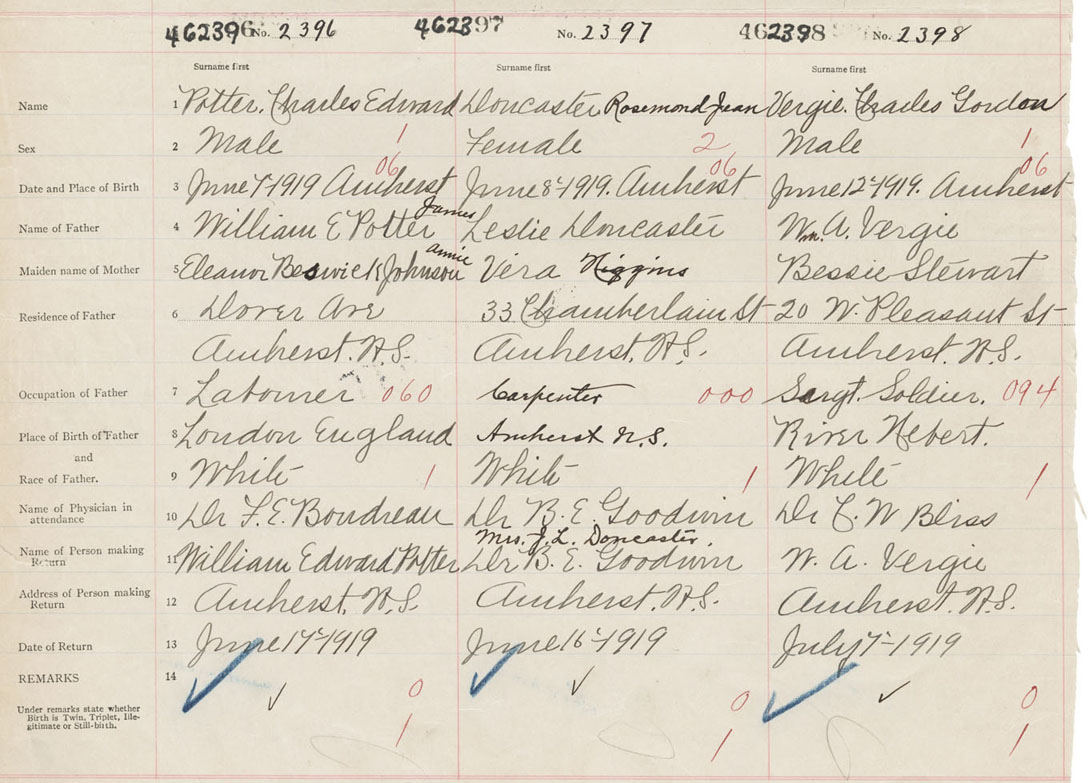 462396 No. 2396 462397 No. 2397 462398 No. 2398
Surname first Surname first Surname first
Name 1 Potter. Charles Edward Doncaster Rosemond Jean Vergie. Charles Gordon
Sex 2 Male 1 Female 2 Male 1
06 06 06
Date and Place of Birth 3 June 7-1919 Amherst June 8-1919. Amherst June 12-1919. Amherst
James
Name of Father 4 William E Potter Leslie Doncaster Wm. A. Vergie
Annie
Maiden name of Mother 5 Eleanor Beswick Johnson Vera Higgins Bessie Stewart
Residence of Father 6 Dover Ave 33 Chamberlain St 20 W. Pleasant St
Amherst. N.S. Amherst. N.S. Amherst. N.S.
Occupation of Father 7 Labourer 060 Carpenter 000 Sargt. Soldier. 094
Place of Birth of Father 8 London England Amherst N.S. River Hebert.
and
Race of Father. 9 White 1 White 1 White 1
Name of Physician in
attendance 10 Dr F. E. Boudreau Dr B. E. Goodwin Dr C. W Bliss
Mrs. J. L. Doncaster.
Name of Person making
Return 11 William Edward Potter Dr B. E. Goodwin W. A. Vergie
Address of Person making
Return 12 Amherst. N.S. Amherst. N.S. Amherst. N.S.
Date of Return 13 June 17-1919 June 16-1919 July 7-1919
REMARKS 14
0 0 0
Under remarks state whether
Birth is Twin, Triplet, Ille-
gitimate or Still-birth.
1 1 1